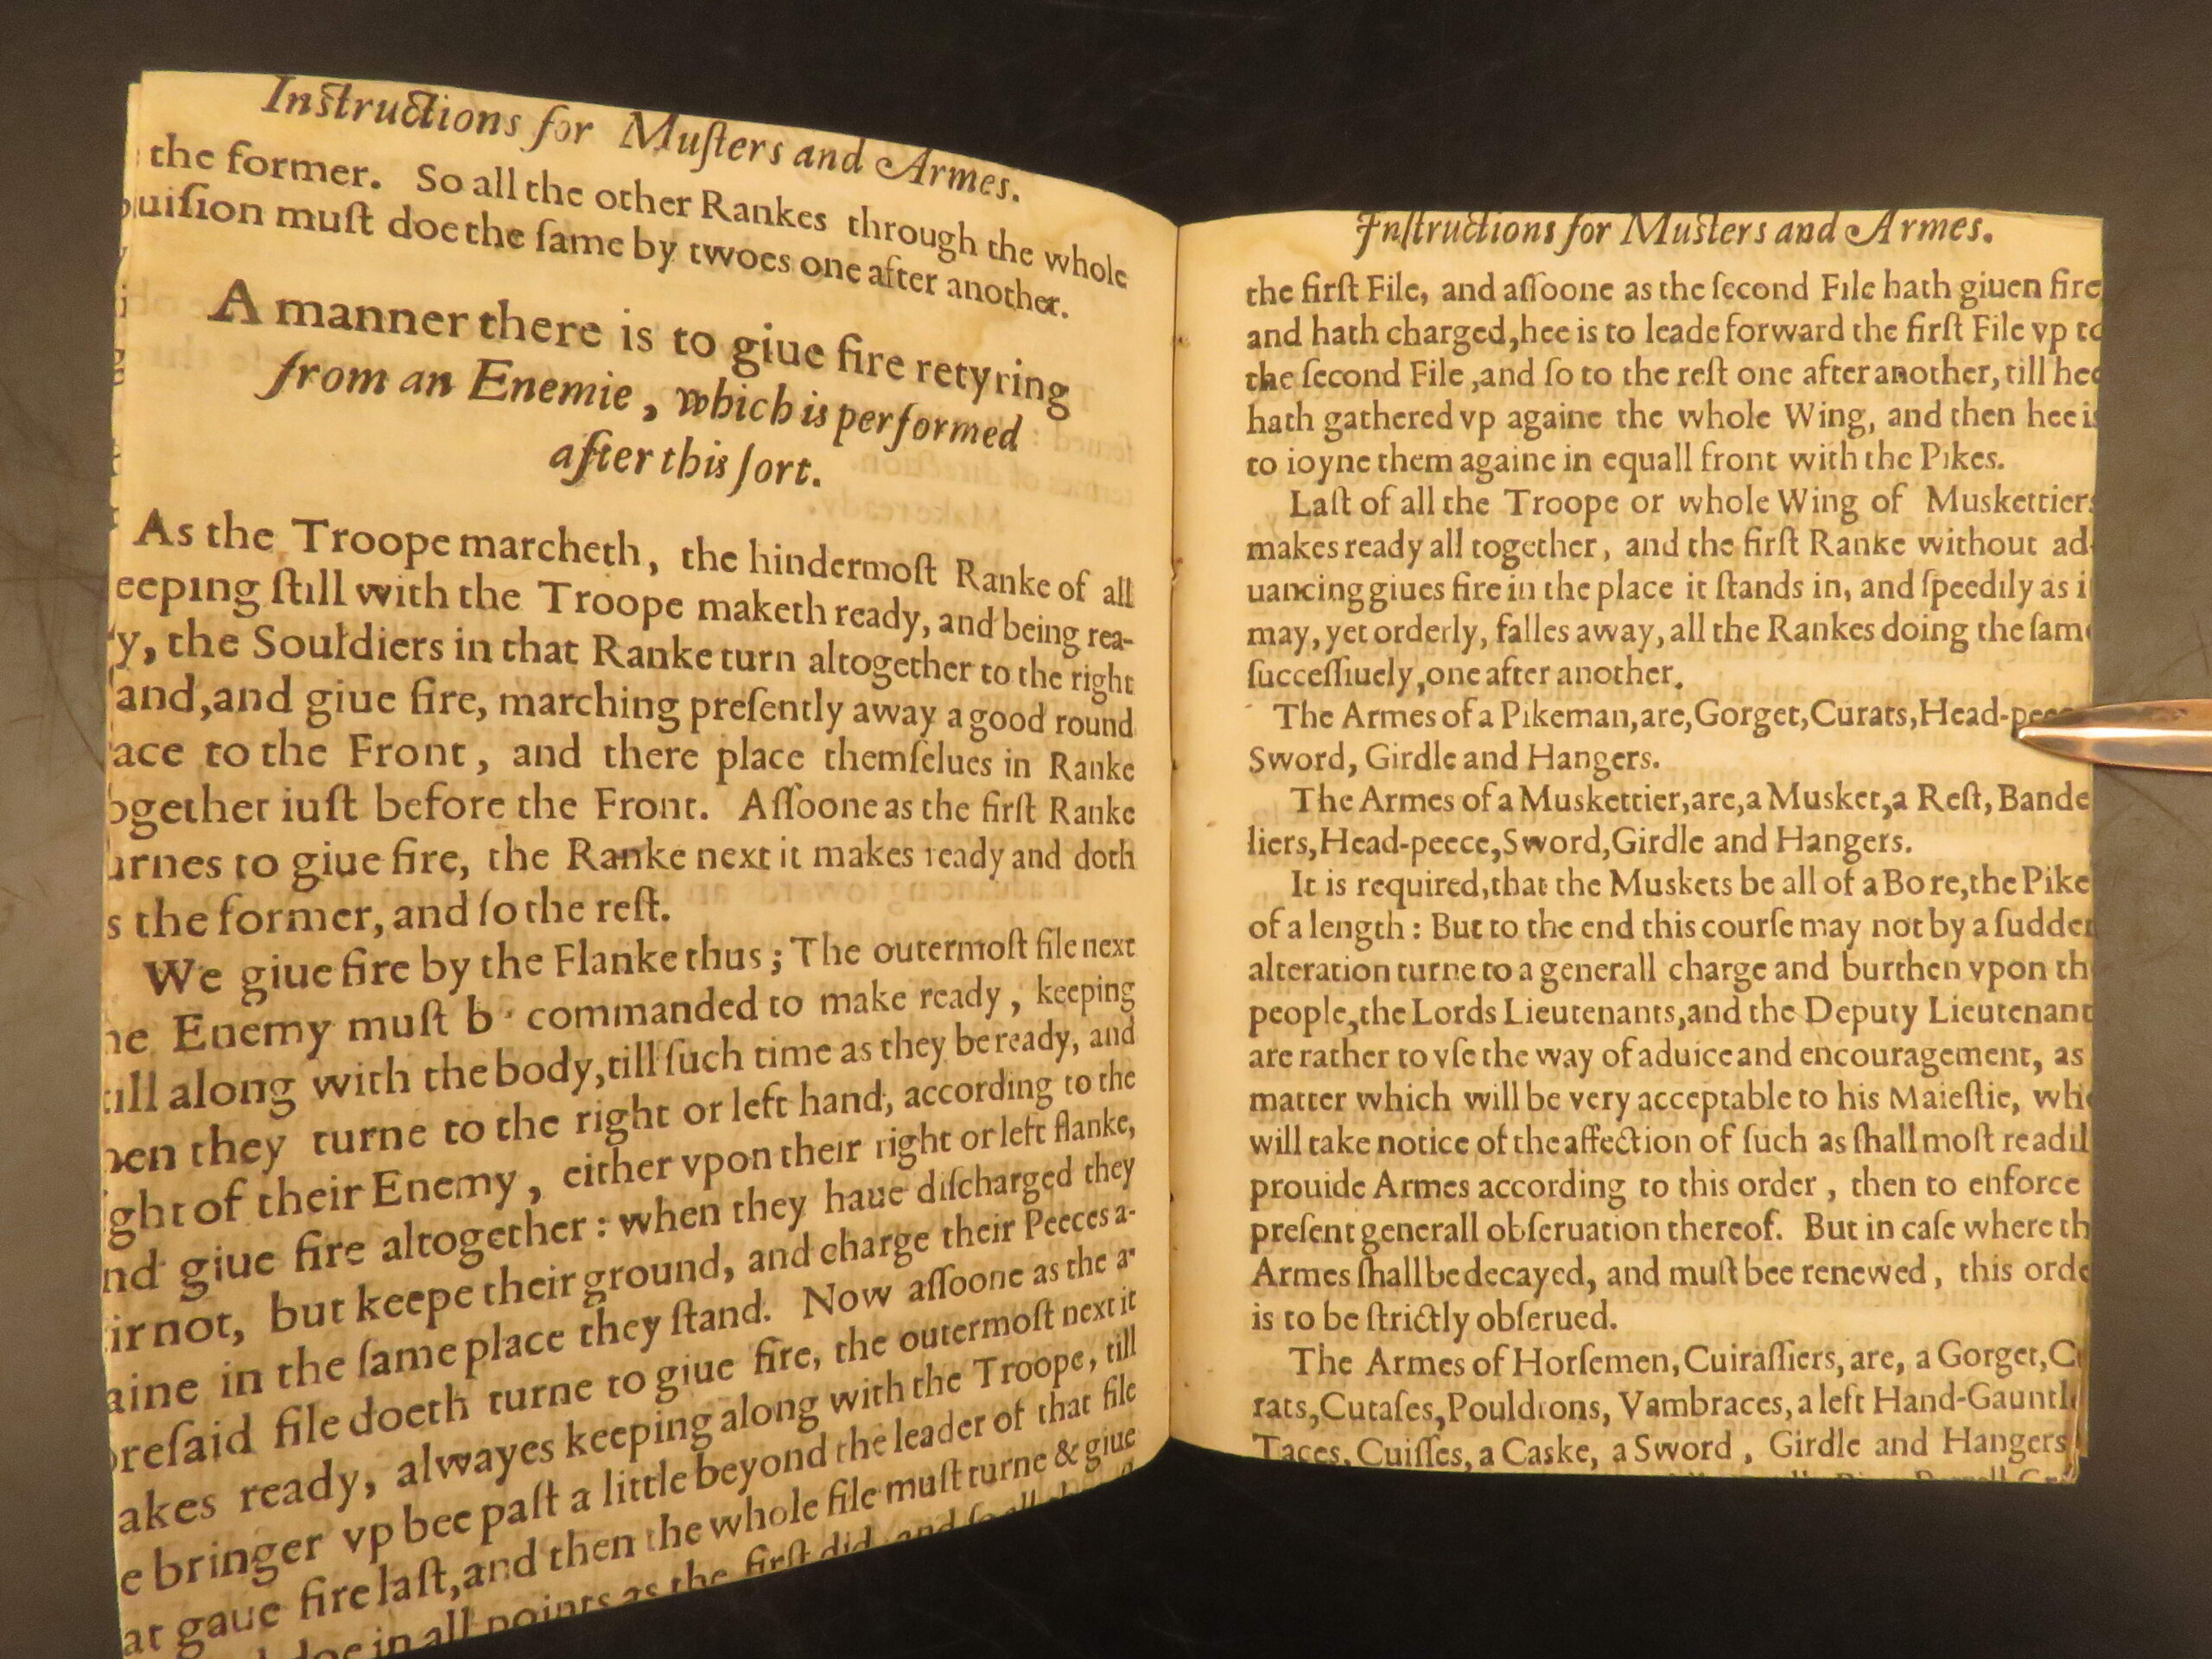 Instructions for Muſters and Armes.
the former. So all the other Rankes through the whole
uiſion muſt doe the ſame by twoes one after another.
A manner there is to giue fire retyring
from an Enemie, which is performed
after this ſort.
As the Troope marcheth, the hindermoſt Ranke of all
eeping ſtill with the Troope maketh ready, and being rea-
y, the Souldiers in that Ranke turn altogether to the right
and, and giue fire, marching preſently away a good round
ace to the Front, and there place themſelues in Ranke
ogether iuſt before the Front. Aſſoone as the firſt Ranke
urnes to giue fire, the Ranke next it makes ready and doth
s the former, and ſo the reſt.
We giue fire by the Flanke thus; The outermoſt file next
he Enemy muſt b commanded to make ready, keeping
till along with the body, till ſuch time as they be ready, and
hen they turne to the right or left hand, according to the
ght of their Enemy, either vpon their right or left flanke,
nd giue fire altogether: when they haue diſcharged they
ir not, but keepe their ground, and charge their Peeces a-
aine in the ſame place they ſtand. Now aſſoone as the a-
oreſaid file doeth turne to giue fire, the outermoſt next it
akes ready, alwayes keeping along with the Troope, till
e bringer vp bee paſt a little beyond the leader of that file
at gaue fire laſt, and then the whole file muſt turne & giue
doe in all points as the firſt did, and ſo all
Inſtructions for Muſters and Armes.
the firſt File, and aſſoone as the ſecond File hath giuen fire
and hath charged, hee is to leade forward the firſt File vp to
the ſecond File, and ſo to the reſt one after another, till hee
hath gathered vp againe the whole Wing, and then hee is
to ioyne them againe in equall front with the Pikes.
Laſt of all the Troope or whole Wing of Muskettiers
makes ready all together, and the firſt Ranke without ad-
uancing giues fire in the place it ſtands in, and ſpeedily as i
may, yet orderly, falles away, all the Rankes doing the ſam
ſucceſſiuely, one after another.
The Armes of a Pikeman, are, Gorget, Curats, Head-peec
Sword, Girdle and Hangers.
The Armes of a Muskettier, are, a Musket, a Reſt, Bande
liers, Head-peece, Sword, Girdle and Hangers.
It is required, that the Muskets be all of a Bore, the Pike
of a length: But to the end this courſe may not by a ſudden
alteration turne to a generall charge and burthen vpon th
people, the Lords Lieutenants, and the Deputy Lieutenant
are rather to vſe the way of aduice and encouragement, as
matter which will be very acceptable to his Maieſtie, who
will take notice of the affection of ſuch as ſhall moſt readil
prouide Armes according to this order, then to enforce
preſent generall obſeruation thereof. But in caſe where th
Armes ſhall be decayed, and muſt bee renewed, this orde
is to be ſtrictly obſerued.
The Armes of Horſemen, Cuiraſſiers, are, a Gorget, Cu
rats, Cutaſes, Pouldrons, Vambraces, a left Hand-Gauntl
Taces, Cuiſſes, a Caske, a Sword, Girdle and Hangers